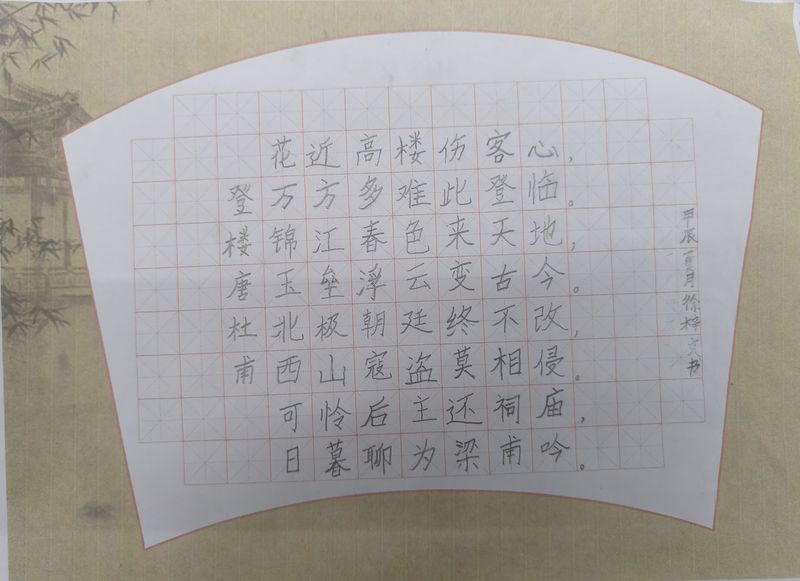 登楼唐杜甫
花近高楼伤客心，
万方多难此登临。
锦江春色来天地，
玉垒浮云变古今。
北极朝廷终不改，
西山寇盗莫相侵。
可怜后主还祠庙，
日暮聊为梁甫吟。
甲辰夏月徐梓文书